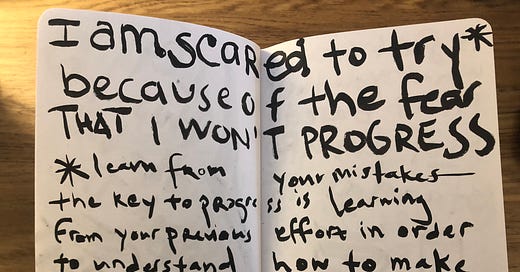 I am SCARed to try*
because of the fear
THAT I WON'T PROGRESS
* learn from your mistakes—
the key to progress is learning
From your previous effort in order
to understand how to make